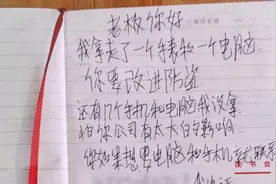 老板你好
我拿走了一个手表和一个电脑
你要改进防盗
还有几个手机和电脑我没拿
怕你公司有太大的影响
你如果想要电脑和手机
联系
读书会